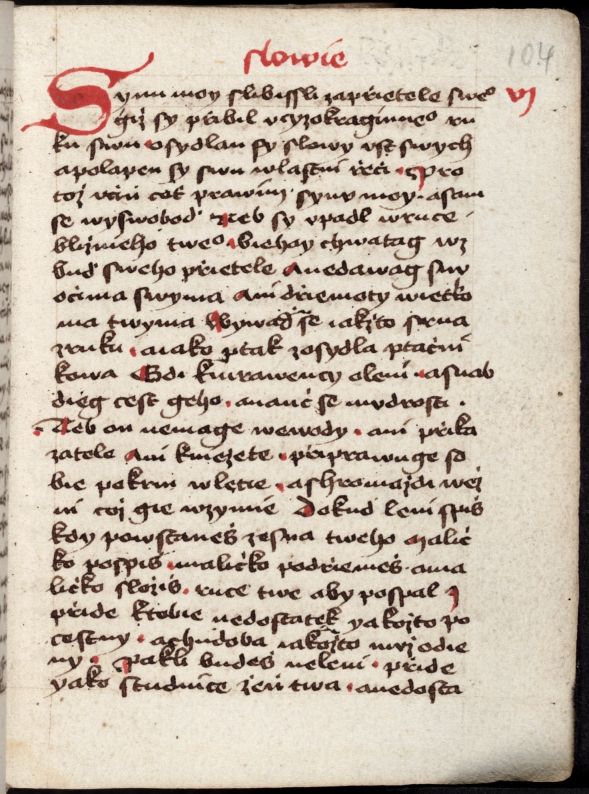 slowie
104
Synu moy slibissli zaprietele sweo
VI
giz sy pribil vcyzokraginueo ru
ku swu osydlan sy slowy vst swych
a polapen sy swu wlastni reci Pro
toz vcin cot prawim synu moy a sam
se wyswobod neb sy vpadl wruce
blizmeho tweo biehay chwatag wz
bud sweho prietele Anedawag snu
ocima swyma Ani driemoty wieczko
ma twyma Wywad se iakzto srna
zruku aiako ptak zosydla ptacni
kowa Gdi kmrawency oleni asnab
dieg cest geho anauc se mudrosti
Neb on nemage wewody ani prika
zatele Ani kniezete priprawuge so
bie pokrm wletie ashromazdi wez
ni coz gie wzymie Dokud leni spis
kdy powstanes zesna tweho Malic
ko pospis malicko podriemes ama
licko slozis ruce twe aby pospal I
pride ktobie nedostatek yakozto po
cestny achudoba iakozto muz odie
ny Pakli budes neleni pride
yako studnice zen twa anedosta